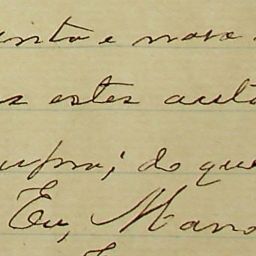 enta e nove
s estes auto
supra; do que
Eu, Mano